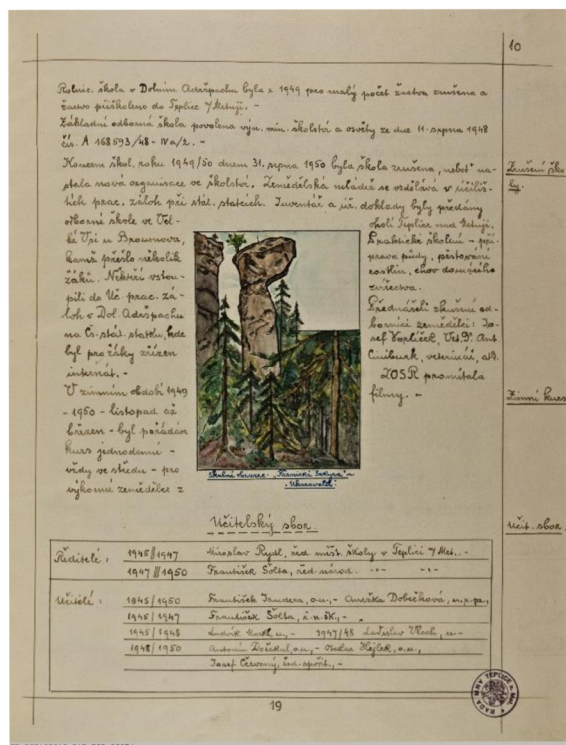 10
Rolnic. škola v Dolním Adršpachu byla r 1949 pro malý počet žactva zrušena a
žactvo přiškoleno do Teplice n/Metují. -
Základní odborná škola povolena výn. min. školství a osvěty ze dne 11 srpna 1948
čís. A 168593/48 - IV a/2. -
Koncem škol. roku 1949/50 dnem 31. srpna 1950 byla škola zrušena, neboť na-
stala nová organisace ve školství. Zemědělská mládež se vzdělává v učiliš-
tích prac. záloh při stát. statcích. Inventář a úř. doklady byly předány
odborné škole ve Vel-
ké Vsi u Broumova,
kamž přešlo několik
žáků. Někteří vstou-
pili do Uč. prac. zá-
loh v Dol. Adršpachu
na čs. stát. statku, kde
byl pro žáky zřízen
internát. -
V zimním období 1949
- 1950 - listopad až
březen - byl pořádán
kurs jednodenní -
vždy ve středu - pro
výkonné zemědělce z
okolí Teplice nad Metují.
Praktické školení - pří-
prava půdy, pěstování
rostlin, chov domácího
zvířectva.
Přednášeli zkušení od-
borníci zemědělci: Jo-
sef Voplíček, Vet. Dr. Ant.
veterinář, atd.
ZOSR promítala
filmy. -
Zrušení ško
ly.
Zimní kurs
Učit. sbor.
Skalní
Učitelský sbor.
Ředitelé: 1945/1947 Miroslav Rydl, řed. měšť. školy v Teplici n/Met. -
1947/1950 František Šolta, řed. národ. -"- -"-
Učitelé: 1945/1950 František Jandera, o.u., - Anežka Dobečková,
1945/1947 František Šolta,
1945/1948 Ludvík 1947/48 Ladislav Vlach, u -
1948/1950 Antonín Doležal, o.u., - Otakar Hejlek, o.u.,
Josef Červený, řed. spořit., -
19
RADA MNV TEPLICE n. Met.